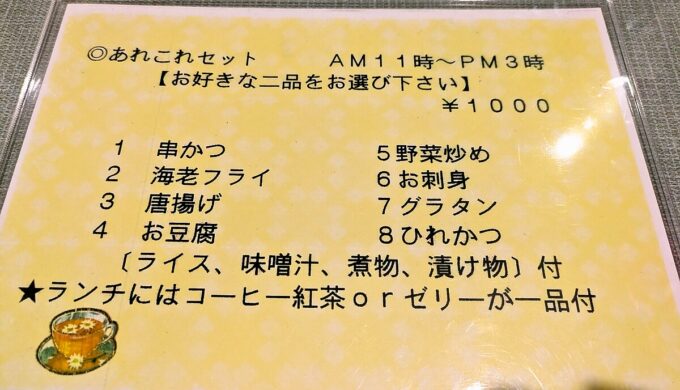 ◎あれこれセット　ＡＭ１１時～ＰＭ３時
【お好きな二品をお選び下さい】
￥１０００
１　串かつ
２　海老フライ
３　唐揚げ
４　お豆腐
５野菜炒め
６お刺身
７グラタン
８ひれかつ
〔ライス、味噌汁、煮物、漬け物〕付
★ランチにはコーヒー紅茶ｏｒゼリーが一品付